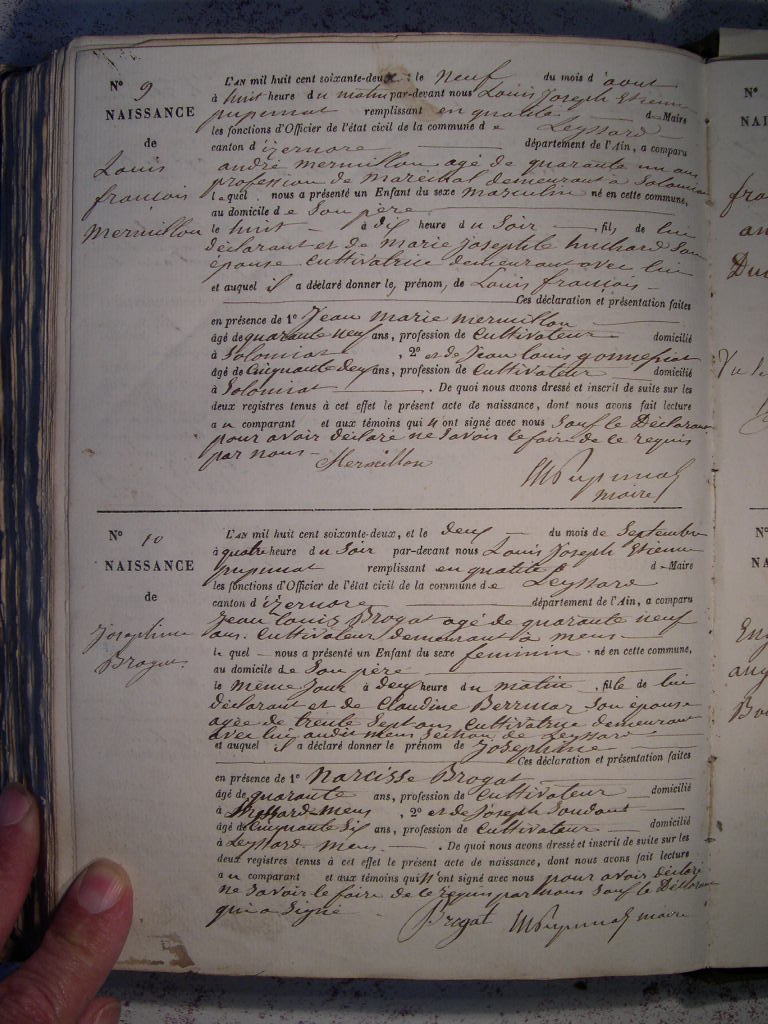 N° 9
NAISSANCE
de
Louis
françois
Mermillon
L'AN mil huit cent soixante-deux : le Neuf du mois d'aout
à huit heure du matin par-devant nous Louis Joseph Etienne
pupunat remplissant en qualité d Maire
les fonctions d'Officier de l'état civil de la commune de Leyssard
canton d'izernore département de l'Ain, a comparu
andré mermillon agé de quarante un ans
profession de maréchal demeurant à Solomiat
lequel nous a présenté un Enfant du sexe masculin né en cette commune,
au domicile de Son père
le huit à dix heure du Soir, fils de lui
déclarant et de marie Josephte huchard Son
épouse cultivatrice demeurant avec lui
et auquel il a déclaré donner les prénoms de Louis françois
Ces déclaration et présentation faites
en présence de 1° Jean marie mermillon
âgé de quarante neuf ans, profession de Cultivateur domicilié
à Solomiat, 2° et de Jean Louis
âgé de Cinquante deux ans, profession de Cultivateur domicilié
à Solomiat. De quoi nous avons dressé et inscrit de suite sur les
deux registres tenus à cet effet le présent acte de naissance, dont nous avons fait lecture
au comparant et aux témoins qui ont signé avec nous Sauf le Déclarant
pour avoir déclaré ne Savoir le faire de ce requis
par nous
Mermillon
Pupunat
maire
N° 10
NAISSANCE
de
Josephine
Brogat
L'AN mil huit cent soixante-deux, et le deux du mois de Septembre
à quatre heure du Soir par-devant nous Louis Joseph Etienne
pupunat remplissant en qualité d Maire
les fonctions d'Officier de l'état civil de la commune de Leyssard
canton d'izernore département de l'Ain, a comparu
Jean Louis Brogat agé de quarante neuf
ans. Cultivateur demeurant à mens
lequel nous a présenté un Enfant du sexe feminin né en cette commune,
au domicile de Son père
le même Jour à deux heure du matin, fille de lui
déclarant et de Claudine Son épouse
agée de trente Sept ans Cultivatrice demeurant
avec lui audit mens Section de Leyssard
et auquel il a déclaré donner le prénom de Josephine
Ces déclaration et présentation faites
en présence de 1° Narcisse Brogat
âgé de quarante ans, profession de Cultivateur domicilié
à mens, 2° et de Joseph Soudant
âgé de Cinquante Six ans, profession de Cultivateur domicilié
à Leyssard mens. De quoi nous avons dressé et inscrit de suite sur les
deux registres tenus à cet effet le présent acte de naissance, dont nous avons fait lecture
au comparant et aux témoins qui n'ont signé avec nous pour avoir déclaré
ne Savoir le faire de ce requis par nous Sauf le Déclarant
qui a Signé
Brogat
Pupunat maire
N°
N°